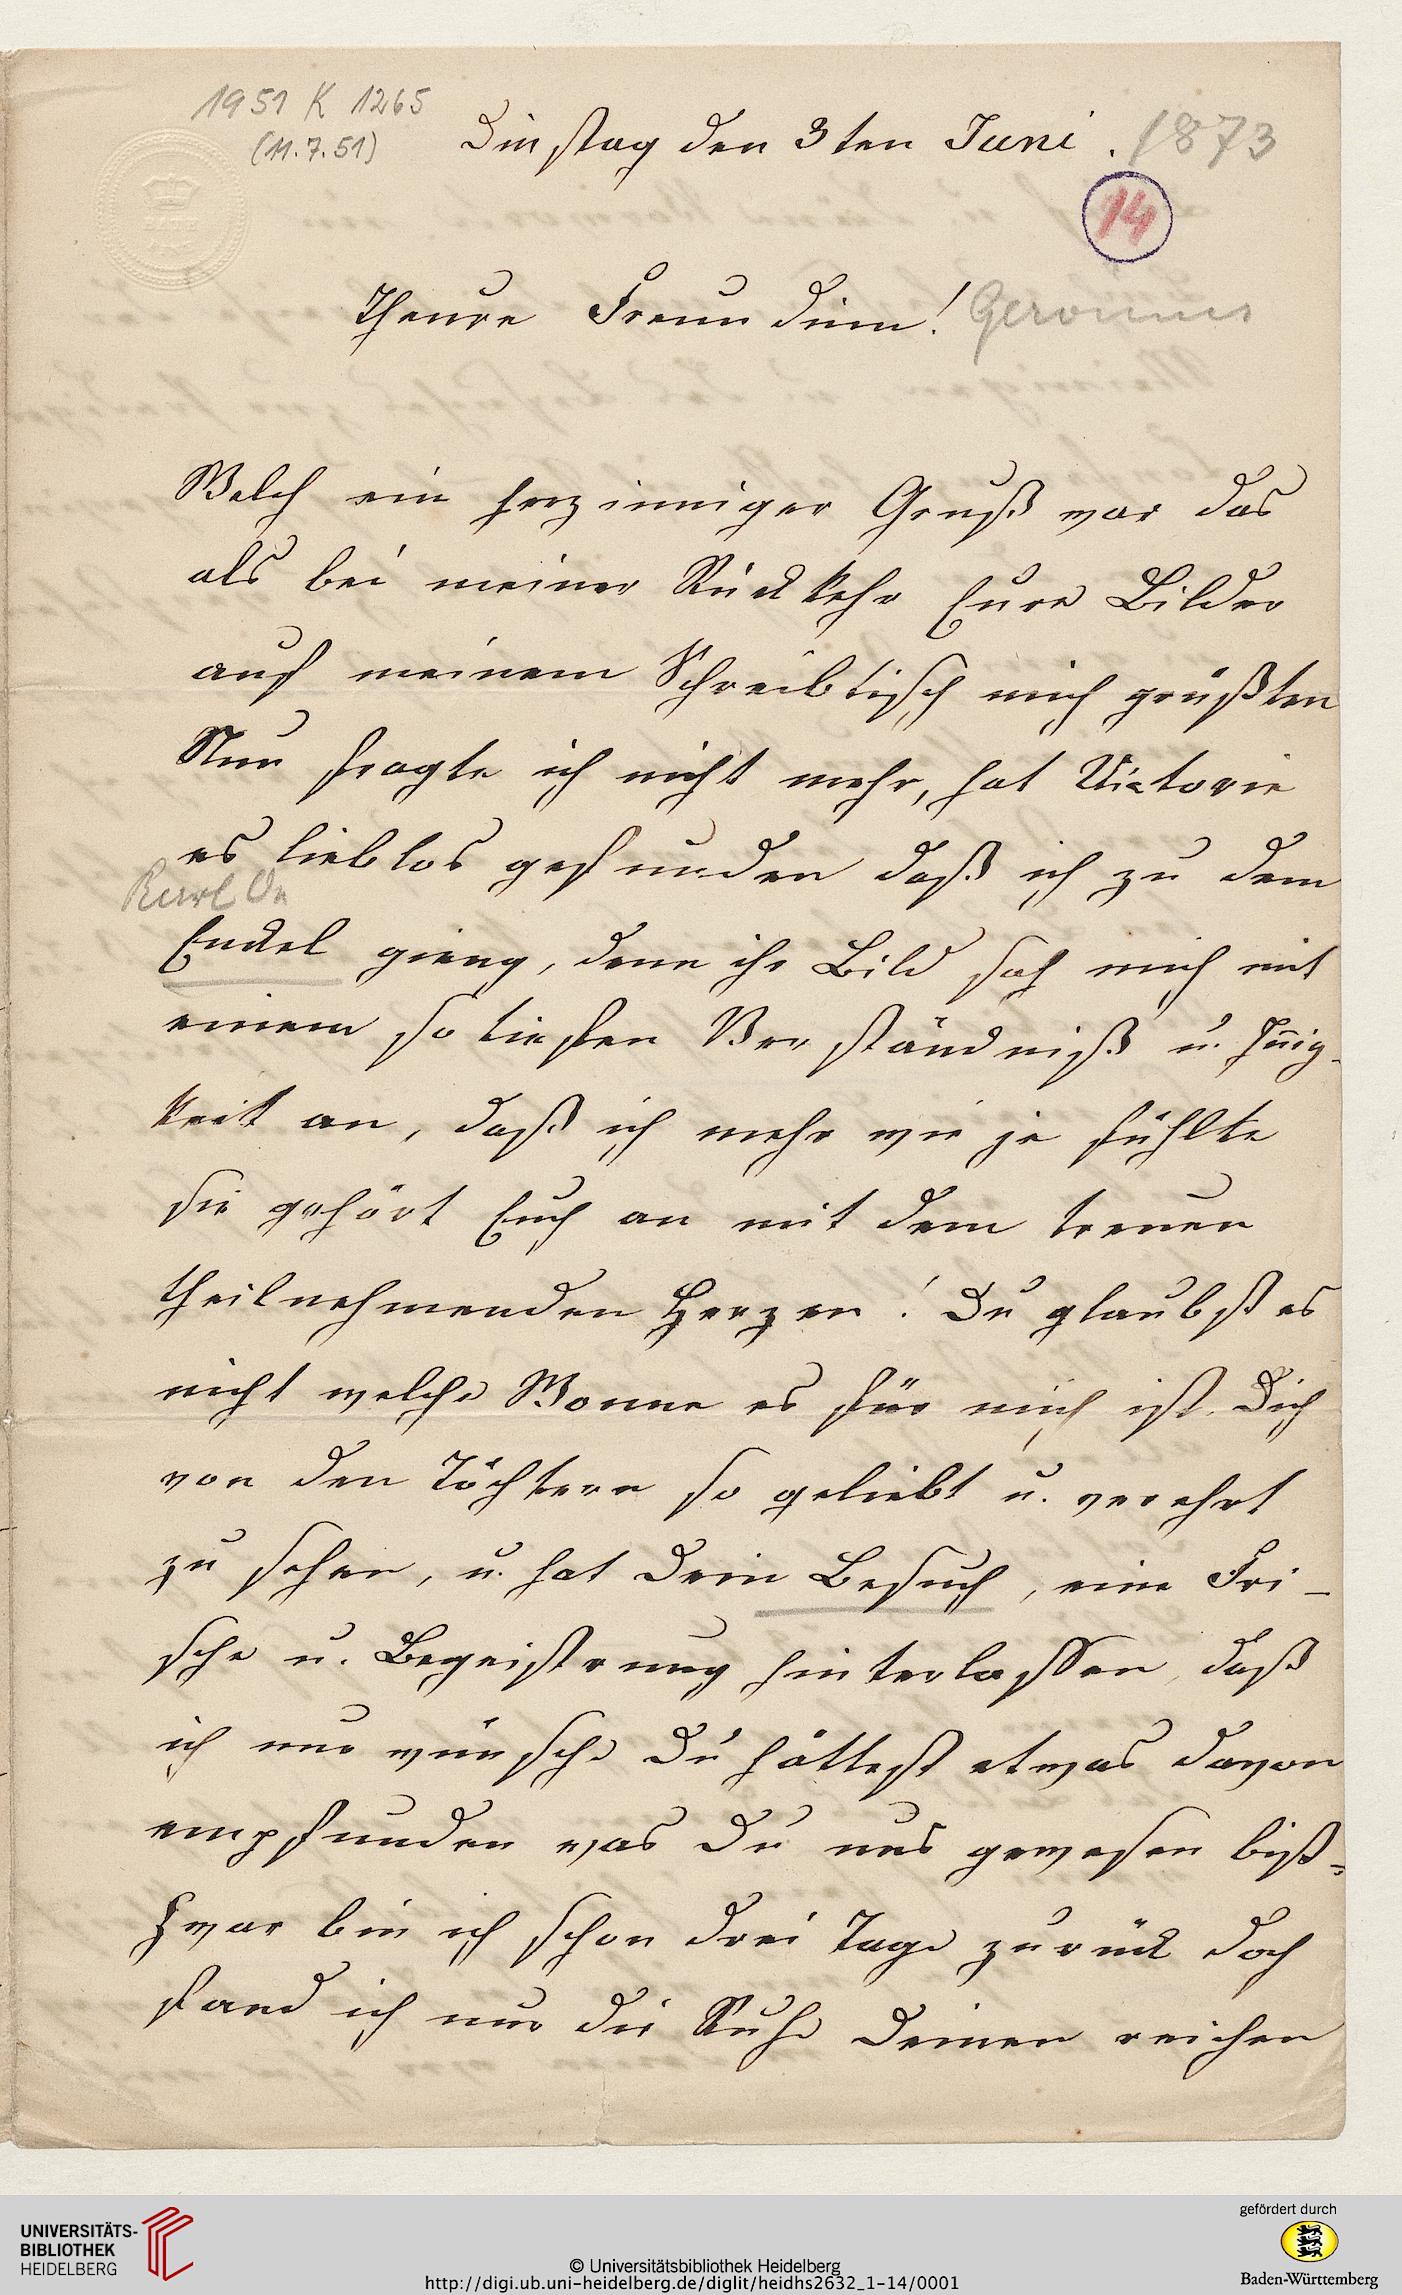 1951 K 1265
(11.7.51)
Dinstag den 3ten Juni . 1873
14
Theure Freundinn! Gervinus
Welch ein herzinniger Gruß war das
als bei meiner Rückkehr Eure Bilder
auf meinem Schreibtisch mich grüßten
Nun fragte ich nicht mehr, hat Victorie
es lieblos gefunden daß ich zu dem
Karl
Enckel gieng, denn ihr Bild sah mich mit
einem so tiefen Verständniß u. Iñig-
keit an, daß ich mehr wie je fühlte
sie gehört Euch an mit dem treuen
theilnehmenden Herzen! Du glaubst es
nicht welche Wonne es für mich ist Dich
von den Töchtern so geliebt u. verehrt
zu sehen, u. hat Dein Besuch, eine Fri-
sche u. Begeistrung hinterlassen, daß
ich nur wünsche Du hättest etwas davon
empfunden was Du uns gewesen bist.
Zwar bin ich schon drei Tage zurück doch
fand ich nur die Ruhe Deinen reichen
UNIVERSITÄTS-
BIBLIOTHEK
HEIDELBERG
© Universitätsbibliothek Heidelberg
http://digi.ub.uni-heidelberg.de/diglit/heidhs2632_1-14/0001
gefördert durch
Baden-Württemberg